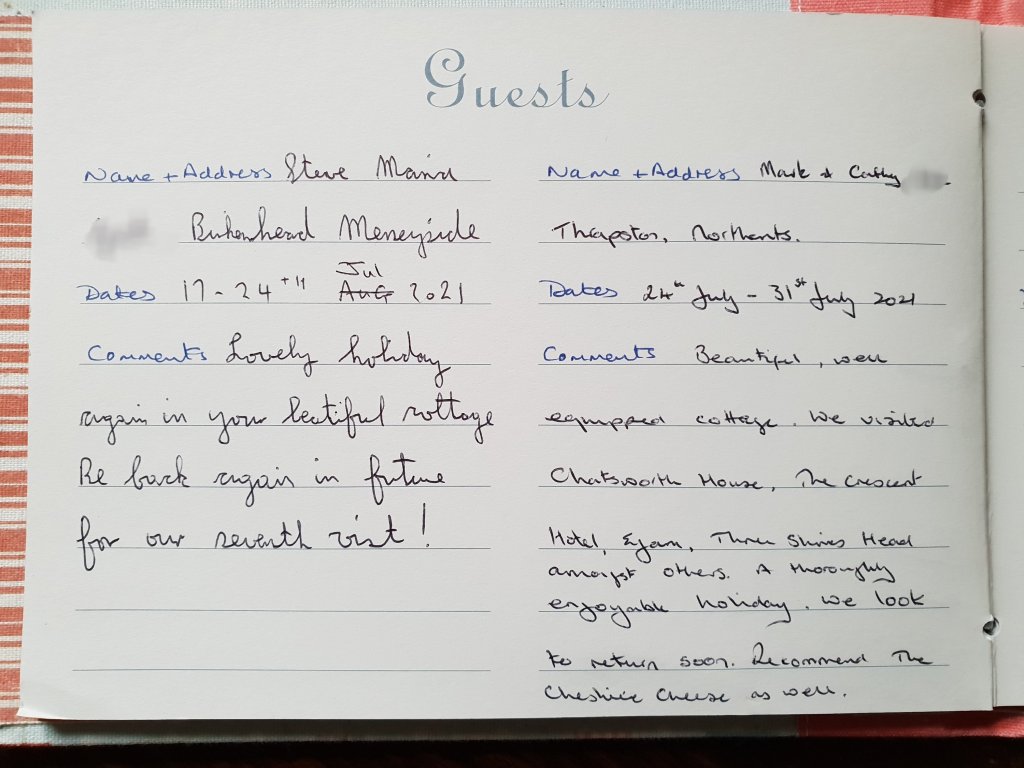 Guests
Name + Address Steve
Birkenhead Merseyside
Dates 17 - 24th Jul
Aug 2021
Comments Lovely holiday
again in your beatiful cottage
Be back again in future
for our seventh visit!
Name + Address Mark & Cathy
Thrapston, Northants.
Dates 24th July - 31st July 2021
Comments Beautiful, well
equipped cottage. We visited
Chatsworth House, The Crescent
Hotel, Eyam, Three Shires Head
amongst others. A thoroughly
enjoyable holiday. We look
to return soon. Recommend The
Cheshire Cheese as well.